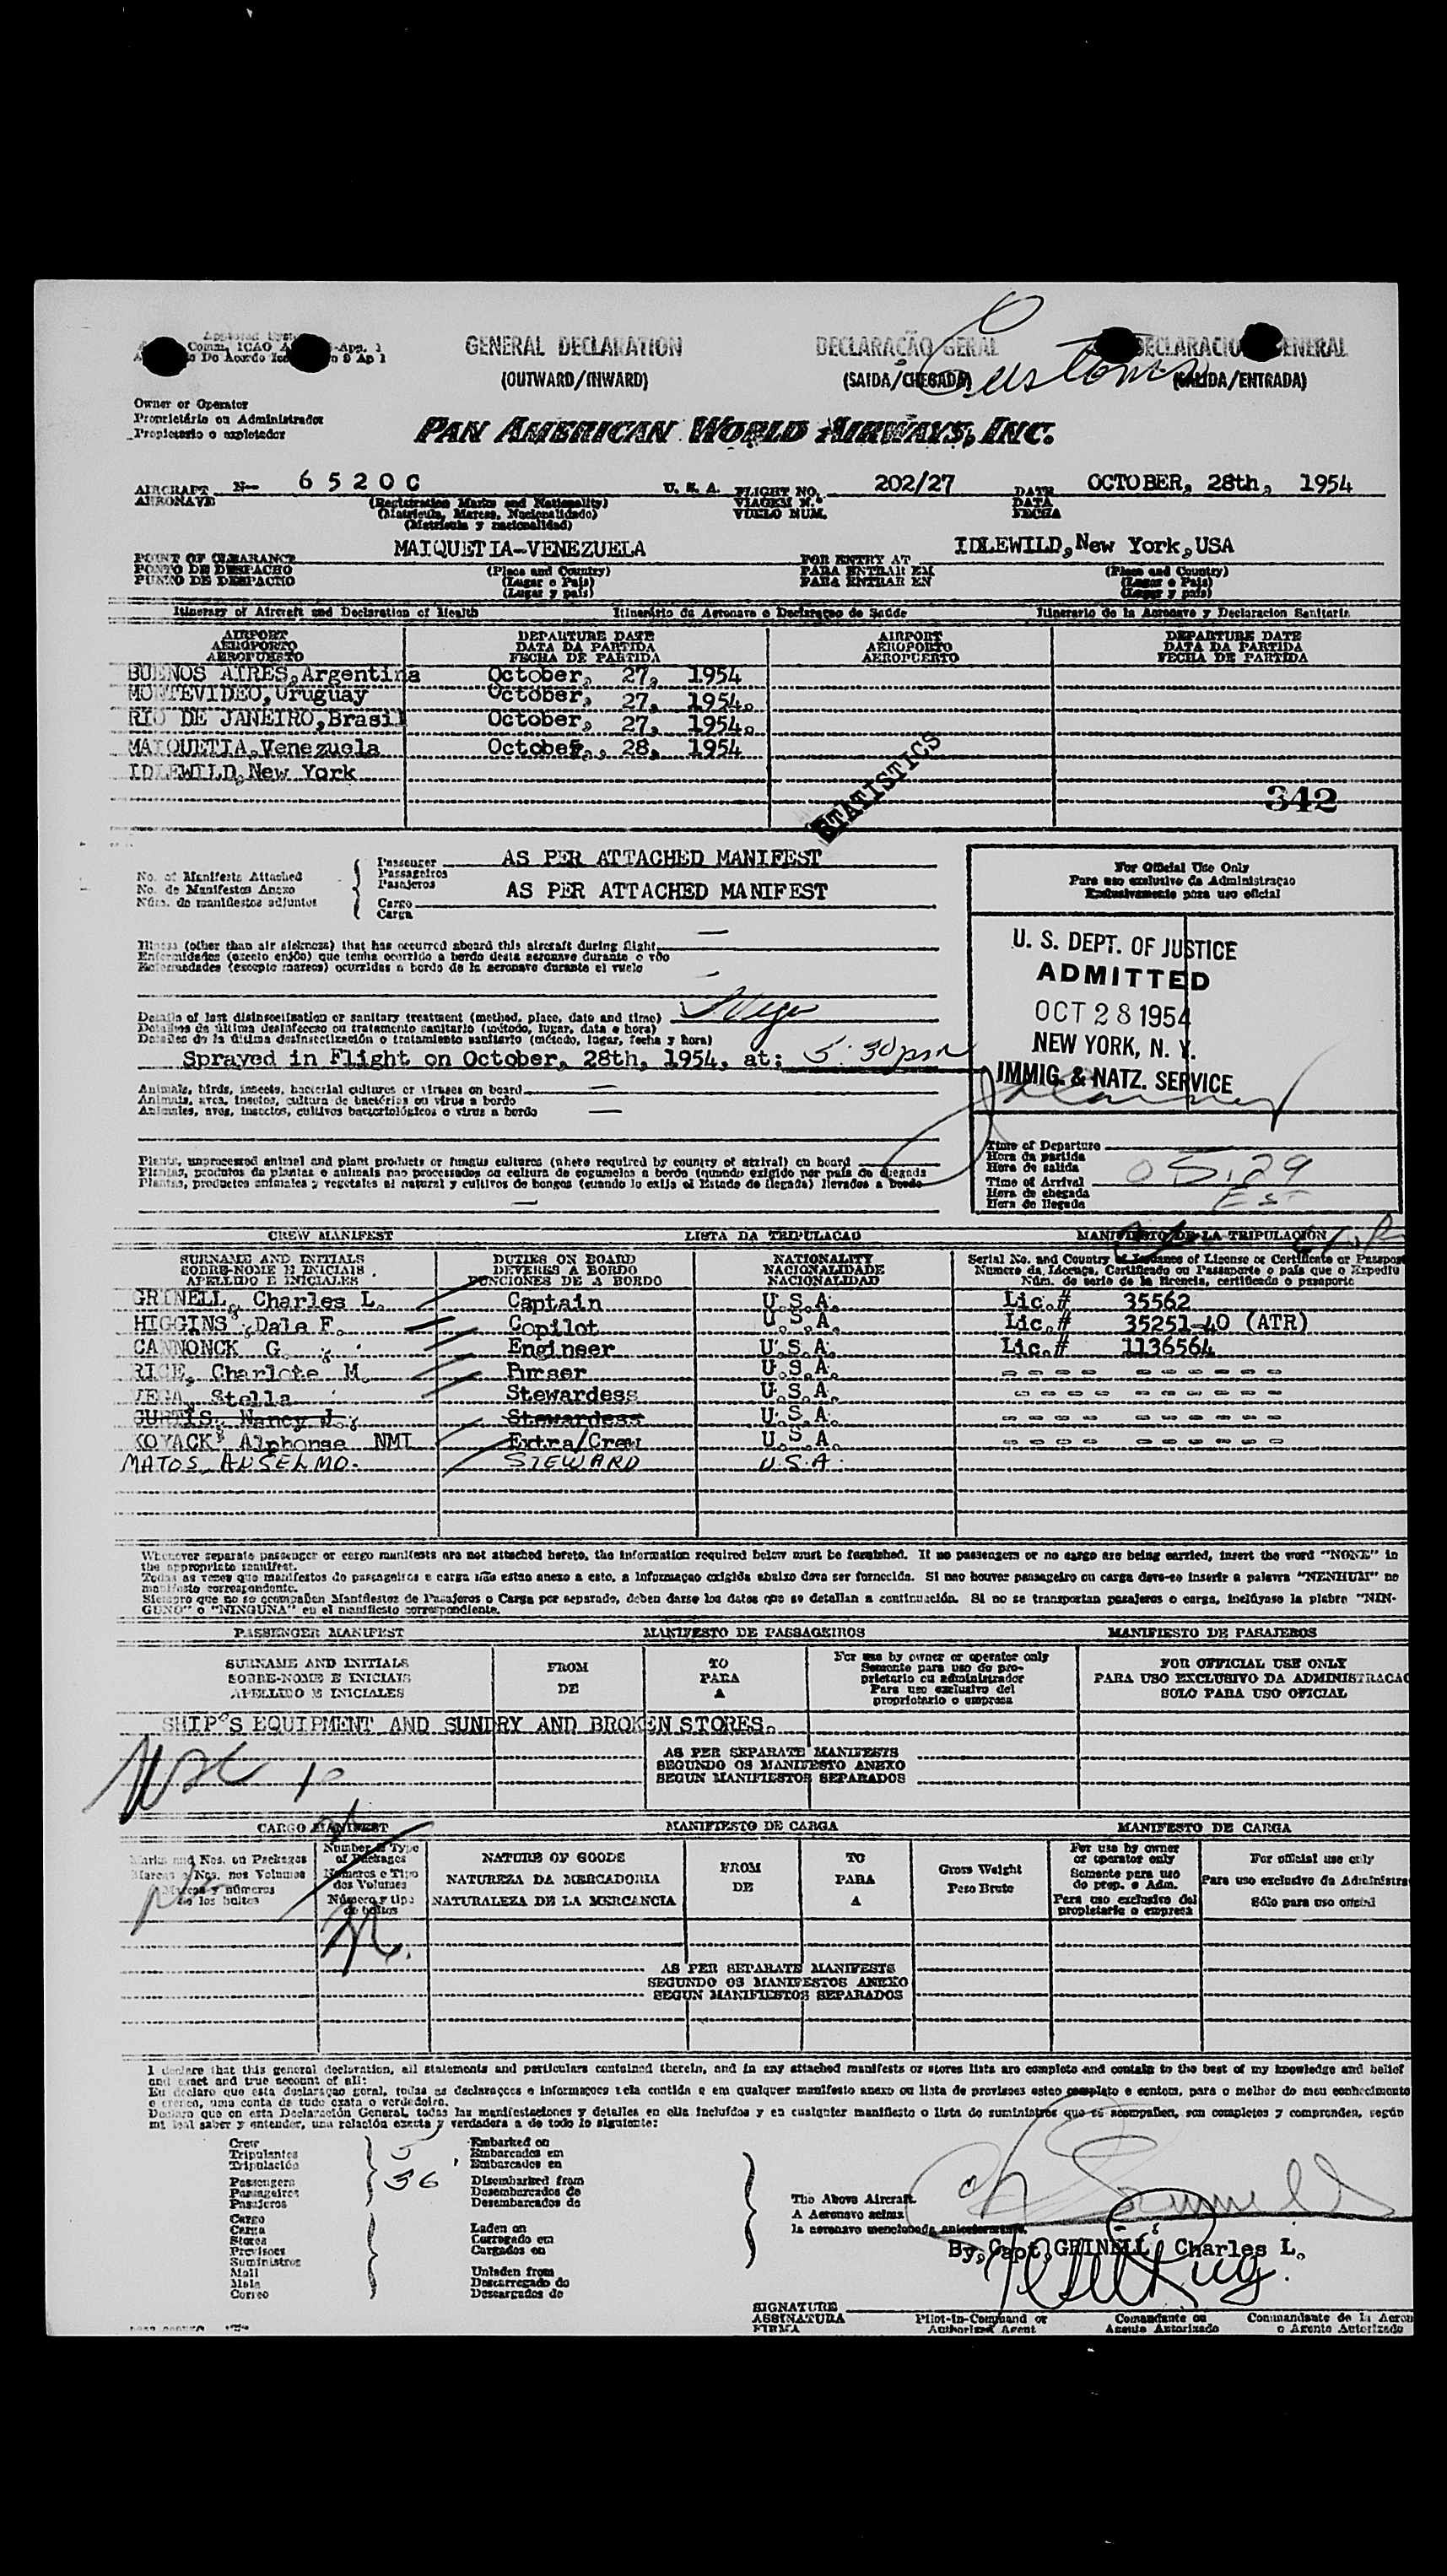 GENERAL DECLARATION
(OUTWARD/INWARD)
DECLARAÇÃO GERAL
(SAIDA/CHEGADA)
DECLARACIO ENERAL
(SALIDA/ENTRADA)
Customs
Owner or Operator
Proprietário ou Administrador
Propietario o explotador
PAN AMERICAN WORLD AIRWAYS, INC.
AIRCRAFT N— 6 5 2 0 C U. S. A. FLIGHT NO. 202/27 DATE OCTOBER, 28th, 1954
AERONAVE (Registration Marks and Nationality) VIAGEM N.º DATA
(Matricula, Marcas, Nacionalidado) VUELO NUM. FECHA
(Matricula y nacionalidad)
POINT OF CLEARANCE MAIQUETIA-VENEZUELA FOR ENTRY AT IDLEWILD, New York, USA
PONTO DE DESPACHO (Place and Country) PARA ENTRAR EM (Place and Country)
PUNTO DE DESPACHO (Lugar e Pais) PARA ENTRAR EN (Lugar e Pais)
(Lugar y pais) (Lugar y pais)
Itinerary of Aircraft and Declaration of Health Itinerário da Aeronave e Declaraçao de Saúde Itinerario de la Aeronave y Declaracion Sanitaria
AIRPORT DEPARTURE DATE AIRPORT DEPARTURE DATE
AEROPORTO DATA DA PARTIDA AEROPORTO DATA DA PARTIDA
AEROPUERTO FECHA DE PARTIDA AEROPUERTO FECHA DE PARTIDA
BUENOS AIRES, Argentina October, 27, 1954
MONTEVIDEO, Uruguay October, 27, 1954.
RIO DE JANEIRO, Brasil October, 27, 1954.
MAIQUETIA, Venezuela October, 28, 1954
IDLEWILD, New York
STATISTICS
342
No. of Manifests Attached Passenger AS PER ATTACHED MANIFEST
No. de Manifestos Anexo Passageiros
Núm. de manifiestos adjuntos Pasajeros
Cargo AS PER ATTACHED MANIFEST
Carga
For Official Use Only
Para uso exclusivo da Administraçao
Exclusivamente para uso oficial
U. S. DEPT. OF JUSTICE
ADMITTED
OCT 28 1954
NEW YORK, N. Y.
IMMIG. & NATZ. SERVICE
Illness (other than air sickness) that has occurred aboard this aircraft during flight —
Enfermidades (exceto enjôo) que tenha ocorrido a bordo desta aeronave durante o vôo
Enfermedades (excepto mareos) ocurridas a bordo de la aeronave durante el vuelo —
Details of last disinsectisation or sanitary treatment (method, place, date and time)
Detalhes da última desinfeccao ou tratamento sanitario (método, lugar, data e hora)
Detalles de la última desinsectización o tratamiento sanitario (método, lugar, fecha y hora)
Sprayed in Flight on October, 28th, 1954, at; 5:30 pm
Animals, birds, insects, bacterial cultures or viruses on board —
Animais, aves, insetos, cultura de bactérias ou virus a bordo
Animales, aves, insectos, cultivos bacteriológicos o virus a bordo —
Plants, unprocessed animal and plant products or fungus cultures (where required by country of arrival) on board
Plantas, produtos de plantas e animais nao processados ou cultura de cogumelos a bordo (quando exigido por país de chegada
Plantas, productos animales y vegetales al natural y cultivos de hongos (cuando lo exija el Estado de llegada) llevados a bordo
—
Time of Departure
Hora da partida
Hora de salida
Time of Arrival 05:29
Hora da chegada EST
Hora de llegada
CREW MANIFEST LISTA DA TRIPULACAO MANIFIESTO DE LA TRIPULACIÓN
SURNAME AND INITIALS DUTIES ON BOARD NATIONALITY Serial No. and Country of Issuance of License or Certificate or Passpor
SOBRE-NOME E INICIAIS DEVERES A BORDO NACIONALIDADE Numero da Licença, Certificado ou Passaporte o pais que o Expediu
APELLIDO E INICIALES FUNCIONES DE A BORDO NACIONALIDAD Núm. de serie de la licencia, certificado o pasaporte
GRINELL, Charles L. Captain U.S.A. Lic.# 35562
HIGGINS, Dale F. Copilot U.S.A. Lic.# 35251-40 (ATR)
CANNONCK G. Engineer U.S.A. Lic.# 1136564
RICE, Charlote M. Purser U.S.A. ---- ------
VEGA, Stella Stewardess U.S.A. ---- ------
CURTIS, Nancy J. Stewardess U.S.A. ---- ------
KOVACK, Alphonse NMI Extra/Crew U.S.A. ---- ------
MATOS, ANSELMO. STEWARD U.S.A.
Whenever separate passenger or cargo manifests are not attached hereto, the information required below must be furnished. If no passengers or no cargo are being carried, insert the word "NONE" in
the appropriate manifest.
Todas as vezes que manifestos de passageiros e carga não estao anexo a esto, a informaçao exigida abaixo deve ser fornecida. Si nao houver passageiro ou carga deve-se inserir a palavra "NENHUM" no
manifesto correspondente.
Siempre que no se acompañen Manifiestos de Pasajeros o Carga por separado, deben darse los datos que se detallan a continuación. Si no se transportan pasajeros o carga, inclúyase la plabre "NIN-
GUNO" o "NINGUNA" en el manifiesto correspondiente.
PASSENGER MANIFEST MANIFESTO DE PASSAGEIROS MANIFIESTO DE PASAJEROS
SURNAME AND INITIALS FROM TO For use by owner or operator only FOR OFFICIAL USE ONLY
SOBRE-NOME E INICIAIS DE PARA Somente para uso do pro- PARA USO EXCLUSIVO DA ADMINISTRACAO
APELLIDO E INICIALES A prietario ou administrador SOLO PARA USO OFICIAL
Para uso exclusivo del
proprietario o empresa
SHIP'S EQUIPMENT AND SUNDRY AND BROKEN STORES.
AS PER SEPARATE MANIFESTS
SEGUNDO OS MANIFESTO ANEXO
SEGUN MANIFIESTOS SEPARADOS
CARGO MANIFEST MANIFIESTO DE CARGA MANIFESTO DE CARGA
Marks and Nos. on Packages Number & Type of Packages NATURE OF GOODS FROM TO Gross Weight For use by owner or operator only For official use only
Marcas y Nos. nos Volumes Numeros e Tipo dos Volumes NATUREZA DA MERCADORIA DE PARA Peso Bruto Somente para uso do prop. e Adm. Para uso exclusivo da Administra
Marcas y números de los bultos Número y tipo de bultos NATURALEZA DE LA MERCANCIA A Para uso exclusivo del propietario o empresa Sólo para uso oficial
AS PER SEPARATE MANIFESTS
SEGUNDO OS MANIFESTOS ANEXO
SEGUN MANIFIESTOS SEPARADOS
I declare that this general declaration, all statements and particulars contained therein, and in any attached manifests or stores lists are complete and contain to the best of my knowledge and belief
and exact and true account of all:
Eu declaro que esta declaraçao geral, todas as declaraçoes e informaçoes nela contida e em qualquer manifesto anexo ou lista de provisoes estao completo e contem, para o melhor do meu conhecimento
e crenca, uma conta de tudo exata o verdadeira.
Declaro que en esta Declaración General, todas las manifestaciones y detalles en ella incluídos y en cualquier manifiesto o lista de suministros que se acompañen, son completos y comprenden, según
mi leal saber y entender, una relación exacta y verdadera a de todo lo siguiente:
Crew Embarked on
Tripulantes Embarcados em
Tripulación Embarcados en
Passengers 36 Disembarked from
Passageiros Desembarcados de
Pasajeros Desembarcados de
Cargo
Carga Laden on
Stores Carregado em
Provisoes Cargados en
Suministros
Mail Unladen from
Mala Descarregado do
Correo Descargados de
The Above Aircraft
A Aeronave acima
la aeronave mencionada anteriormente.
By, Capt, GRINELL, Charles L.
SIGNATURE
ASSINATURA Pilot-in-Command or Comandante ou Commandante de la Aeron
FIRMA Authorized Agent Agente Autorizado o Agente Autorizado